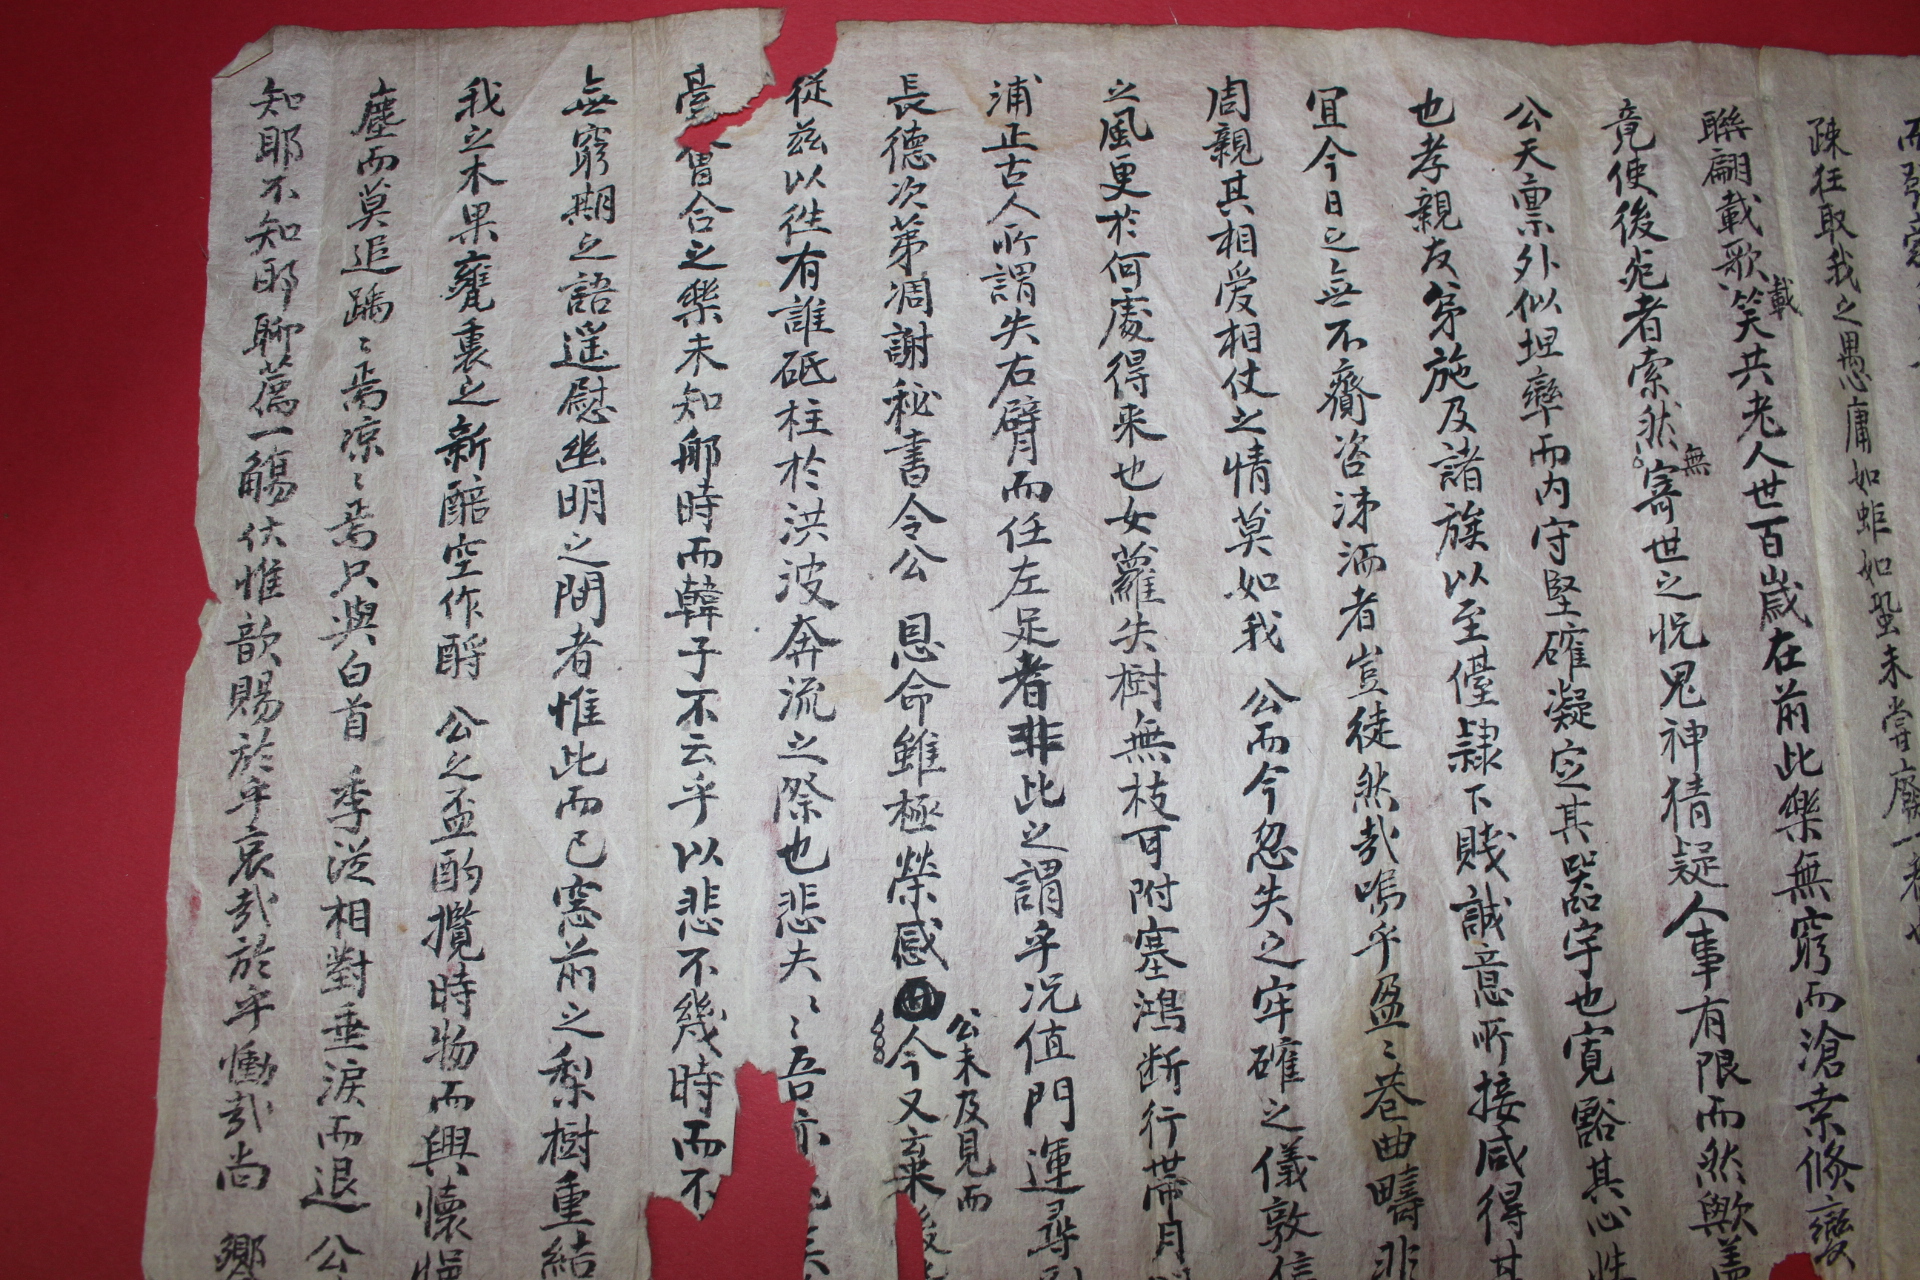 而
疎狂取我之愚庸如蚷如蛩未嘗廢一
聯翩載歌載笑共老人世百歲在前此樂無窮而滄桑倏變
竟使後死者索然無寄世之怳鬼神猜疑人事有限而然歟盖
公天禀外似坦率而內守堅確凝定其器宇也寬豁其心性
也孝親友弟施及諸族以至僮隷下賤誠意所接咸得其
宜今日之無不齎咨涕洒者豈徒然哉嗚乎盈〻巷曲疇非
周親其相爱相仗之情莫如我 公而今忽失之牢確之儀敦信
之風更於何處得来也女蘿失樹無枝可附塞鴻断行帶月
浦正古人所謂失右臂而任左足者非此之謂乎况值門運尋
長德次第凋謝秘書令公 恩命雖極榮感 公未及見而今又棄
從玆以徃有誰砥柱於洪波奔流之際也悲夫〻〻吾亦
曾合之樂未知耶時而韓子不云乎以悲不幾時而不
無窮期之語遥慰幽明之間者惟此而已窓前之梨樹重結
我之木果甕裏之新醅空作酹 公之盃酌攬時物而興懷
塵而莫追踽〻焉凉〻焉只與白首 季從相對垂淚而退 公
知耶不知耶聊薦一觴伏惟歆賜於乎哀哉於乎慟哉尚 饗